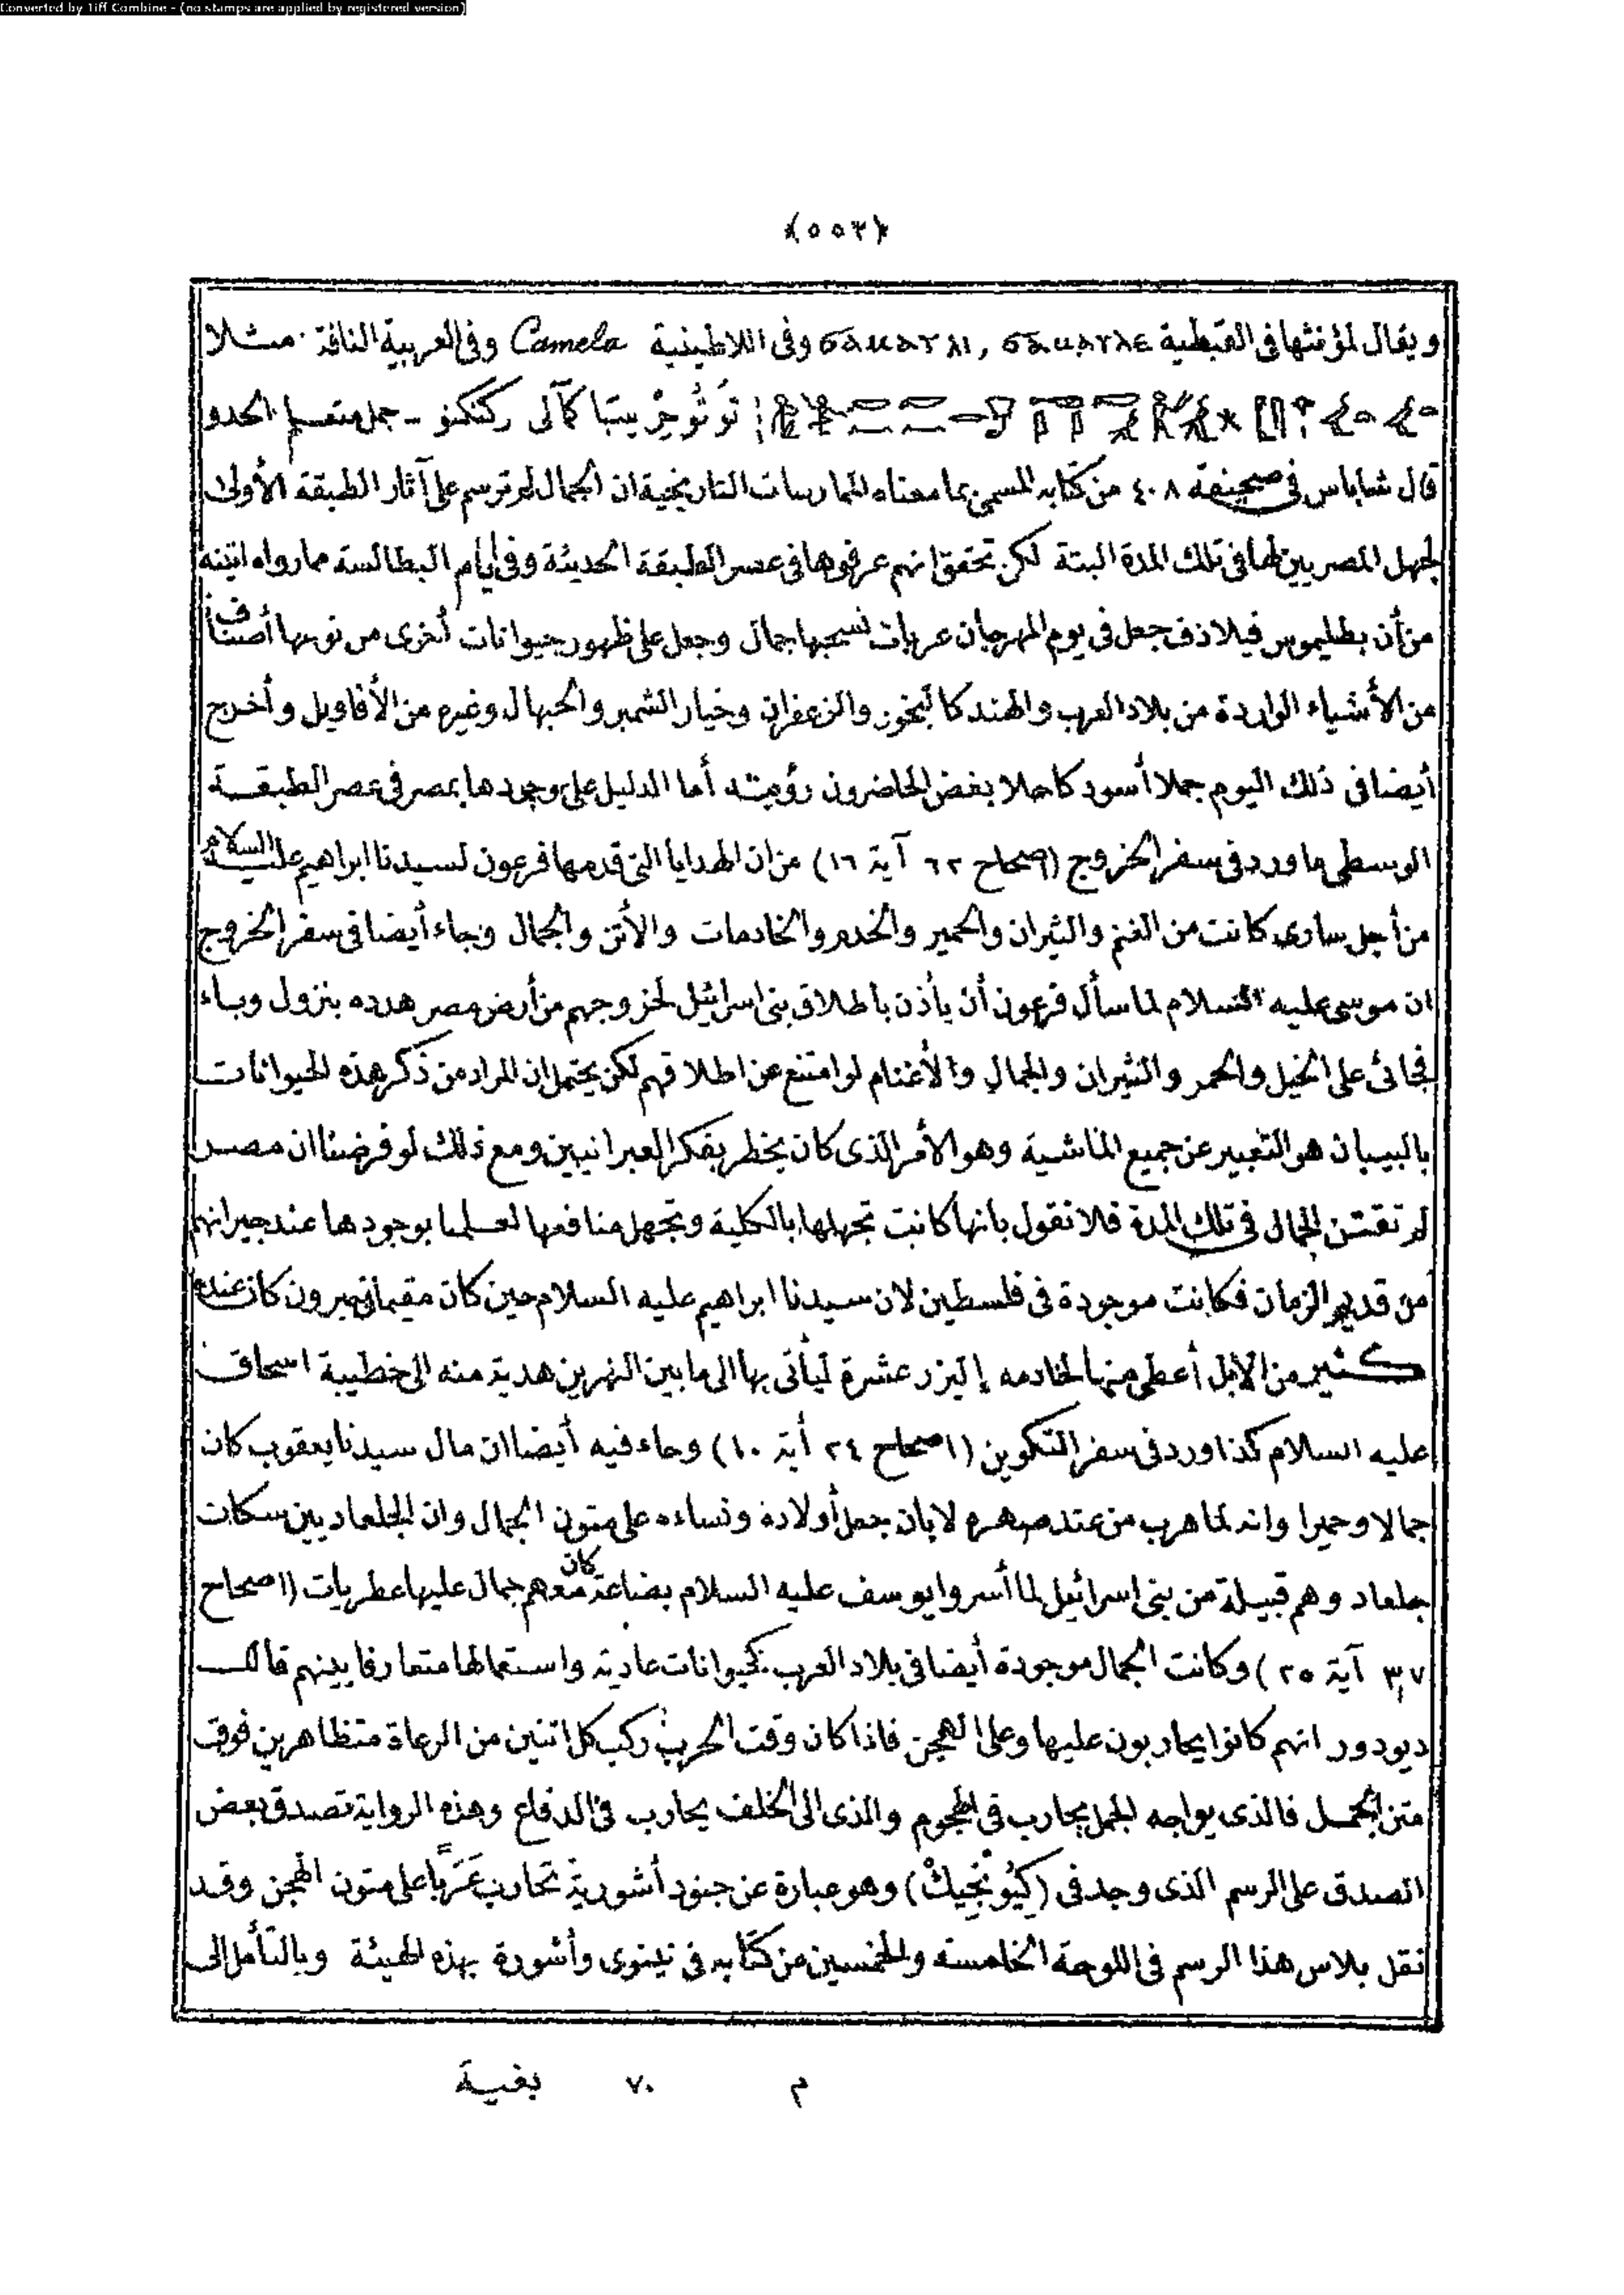 Converted by Tiff Combine - (no stamps are applied by registered version)
(٥٥٣)
ويقال لمؤنثها فى القبطية ϭⲁⲙⲁⲩⲗⲉ , ϭⲁⲙⲁⲩⲗⲓ وفى اللاطينية Camela وفى العربية الناقة . مثلا
كآلى ركنكنو ـ جمل متعلم الحدو
قال شاباس فى صحيفة ٤٠٨ من كتابه المسمى بما معناه الممارسات التاريخية ان الجمال لم ترسم على آثار الطبقة الأولى
لجهل المصريين لها فى تلك المدة البتة لكن تحقق انهم عرفوها فى عصر الطبقة الحديثة وفى ايام البطالسة مما رواه اتينه
من أن بطليموس فيلادف جعل فى يوم المهرجان عربات تسحبها جمال وجعل على ظهور حيوانات أخرى من نوعها أصنافا
من الأشياء الواردة من بلاد العرب والهند كالبخور والزعفران وخيار الشمبر والحبهال وغيره من الأفاويل وأخرج
أيضا فى ذلك اليوم جملا أسود كاحلا بغض الحاضرون رؤيته أما الدليل على وجودها بمصر فى عصر الطبقة
الوسطى ما ورد فى سفر الخروج (اصحاح ٦٢ آية ١٦) من ان الهدايا التى قدمها فرعون لسيدنا ابراهيم عليه السلام
من أجل سارى كانت من الغنم والثيران والحمير والخدم والخادمات والأتن والجمال وجاء أيضا فى سفر الخروج
ان موسى عليه السلام لما سأل فرعون أن يأذن باطلاق بنى اسرائيل لخروجهم من أرض مصر هدده بنزول وباء
فجائى على الخيل والحمر والثيران والجمال والأغنام لو امتنع عن اطلاقهم لكن يحتمل ان المراد من ذكر هذه الحيوانات
بالبيان هو التعبير عن جميع الماشية وهو الأمر الذى كان يخطر بفكر العبرانيين ومع ذلك لو فرضنا ان مصر
لم تقتن الجمال فى تلك المدة فلا نقول بانها كانت تجهلها بالكلية وتجهل منافعها لعلمنا بوجودها عند جيرانهم
من قديم الزمان فكانت موجودة فى فلسطين لان سيدنا ابراهيم عليه السلام حين كان مقيما فى مبرون كان عنده
كثير من الابل أعطى منها لخادمه إليزر عشرة ليأتى بها الى ما بين النهرين هدية منه الى خطيبة اسحاق
عليه السلام كذا ورد فى سفر التكوين (اصحاح ٢٤ أية ١٠) وجاء فيه أيضا ان مال سيدنا يعقوب كان
جمالا وحميرا وانه لما هرب من عند صهره لابان جعل أولاده ونساءه على متون الجمال وان الجلعاديين سكان
جلعاد وهم قبيلة من بنى اسرائيل لما أسروا يوسف عليه السلام بضاعة كان معهم جمال عليها عطريات (اصحاح
٣٧ آية ٢٥) وكانت الجمال موجودة أيضا فى بلاد العرب كحيوانات عادية واستعمالها متعارفا بينهم قال
ديودور انهم كانوا يحاربون عليها وعلى الهجن فاذا كان وقت الحرب ركب كل اثنين من الرعاة متظاهرين فوق
متن الجمل فالذى يواجه الجمل يحارب فى الهجوم والذى الى الخلف يحارب فى الدفاع وهذه الرواية تصدق بعض
الصدق على الرسم الذى وجد فى (كيونجيك) وهو عبارة عن جنود أشورية تحارب عربا على متون الهجن وقد
نقل بلاس هذا الرسم فى اللوحة الخامسة والخمسين من كتابه فى نينوى وأشورة بهذه الهيئة وبالتأمل الى
م ٧٠ بغية